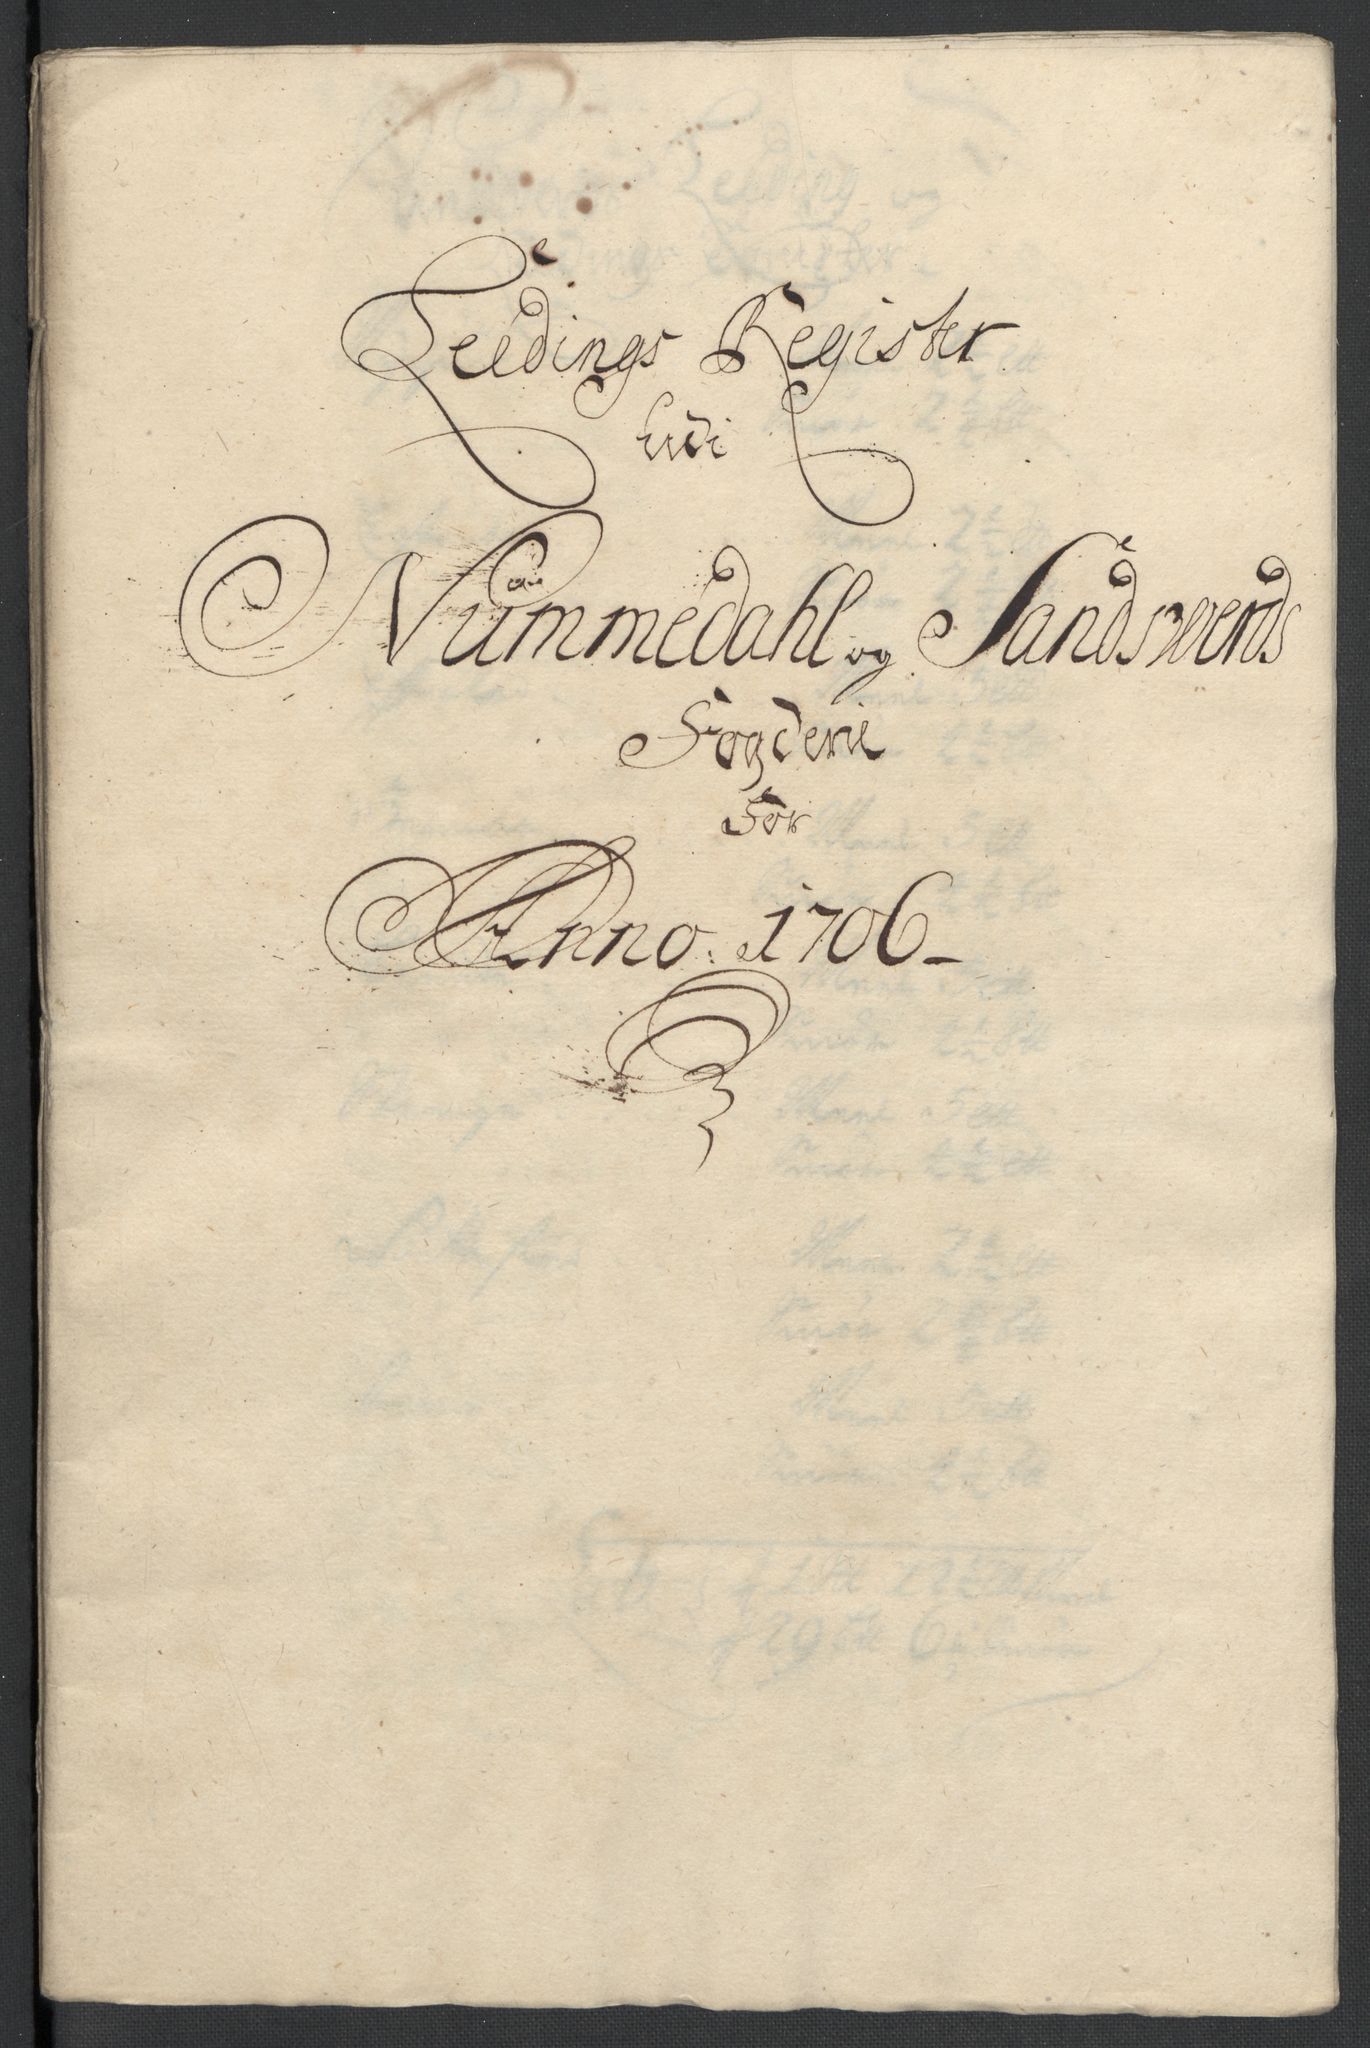 Leedings Register
udi
Nummedahl og Sandsværds
Fogderie
For
Anno. 1706